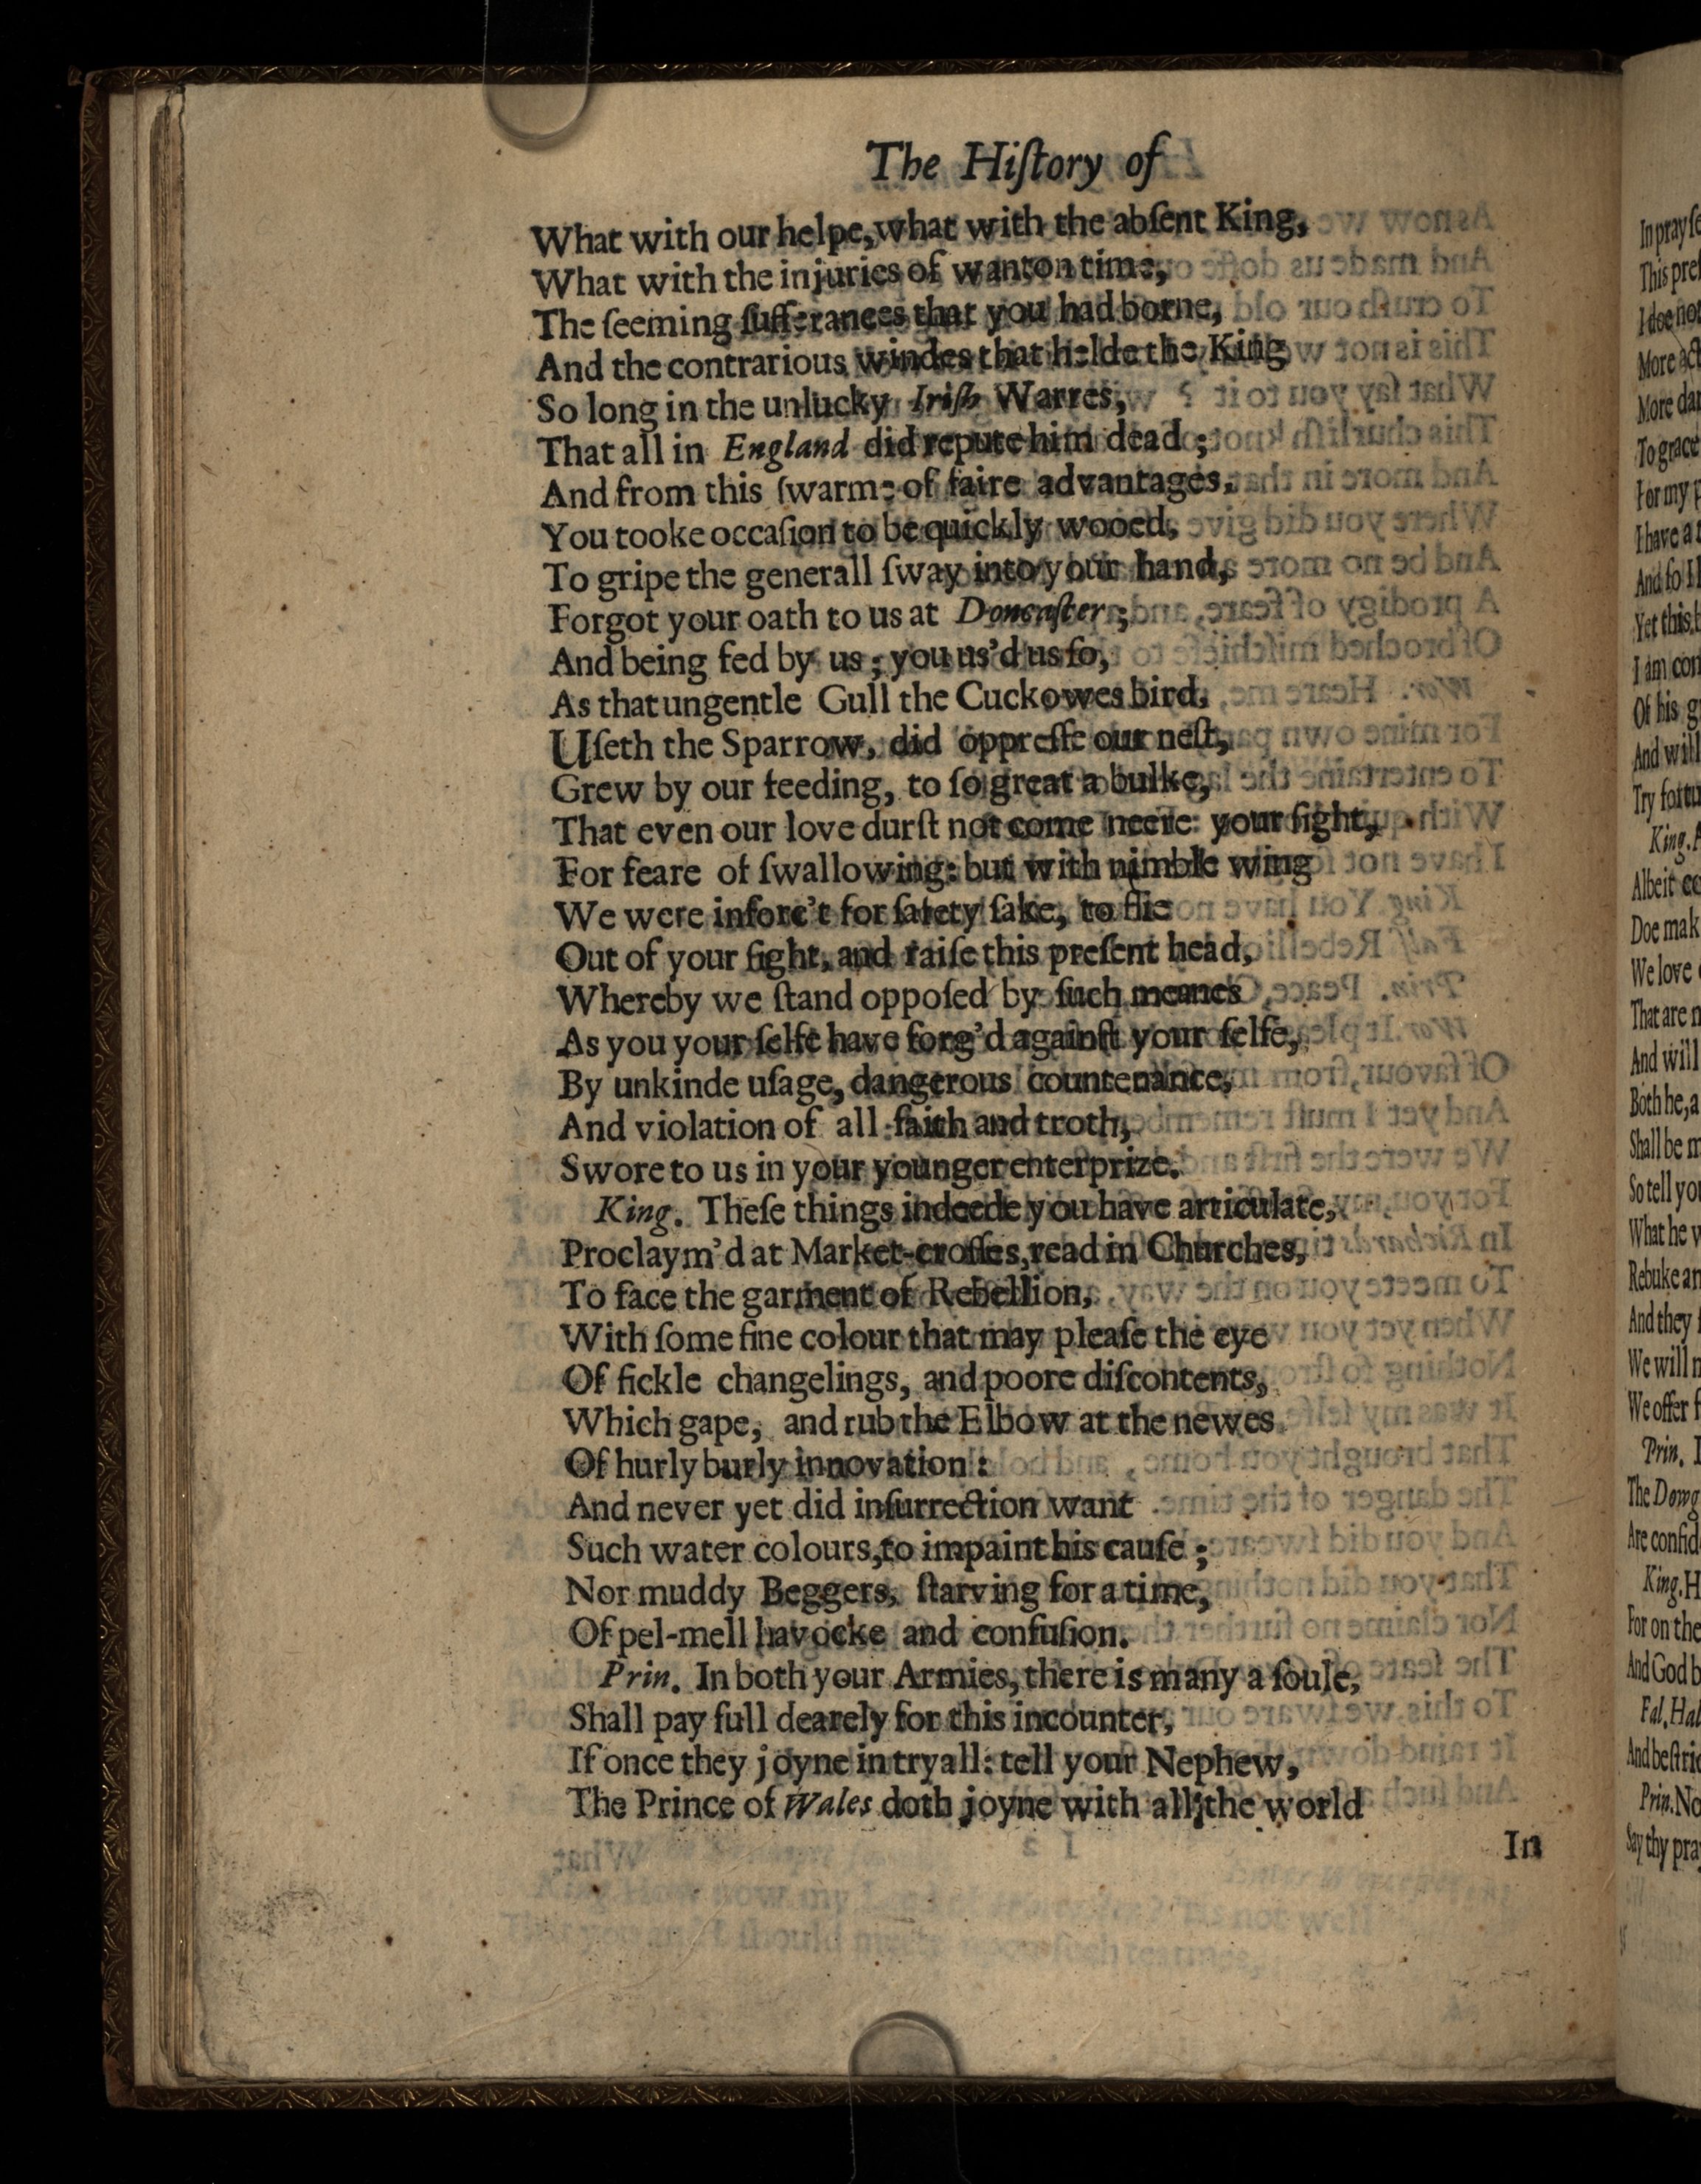 The Hiſtory of
What with our helpe, what with the abſent King,
What with the injuries of wanton time,
The ſeeming ſufferances that you had borne,
And the contrarious windes that helde the King
So long in the unlucky Iriſh Warres,
That all in England did repute him dead;
And from this ſwarme of faire advantages,
You tooke occaſion to be quickly wooed,
To gripe the generall ſway into your hand,
Forgot your oath to us at Doncaſter;
And being fed by us; you us'd us ſo,
As that ungentle Gull the Cuckowes bird,
Uſeth the Sparrow, did oppreſſe our neſt,
Grew by our feeding, to ſo great a bulke,
That even our love durſt not come neere your ſight,
For feare of ſwallowing: but with nimble wing
We were inforc't for ſafety ſake, to flie
Out of your ſight, and raiſe this preſent head,
Whereby we ſtand oppoſed by ſuch meanes
As you your ſelfe have forg'd againſt your ſelfe,
By unkinde uſage, dangerous countenance,
And violation of all faith and troth,
Swore to us in your younger enterprize.
King. Theſe things indeede you have articulate,
Proclaym'd at Market-croſſes, read in Churches,
To face the garment of Rebellion,
With ſome fine colour that may pleaſe the eye
Of fickle changelings, and poore diſcontents,
Which gape, and rub the Elbow at the newes
Of hurly burly innovation:
And never yet did inſurrection want
Such water colours, to impaint his cauſe;
Nor muddy Beggers, ſtarving for a time,
Of pel-mell havocke and confuſion.
Prin. In both your Armies, there is many a ſoule,
Shall pay full dearely for this incounter,
If once they joyne in tryall: tell your Nephew,
The Prince of Wales doth joyne with all the world
In